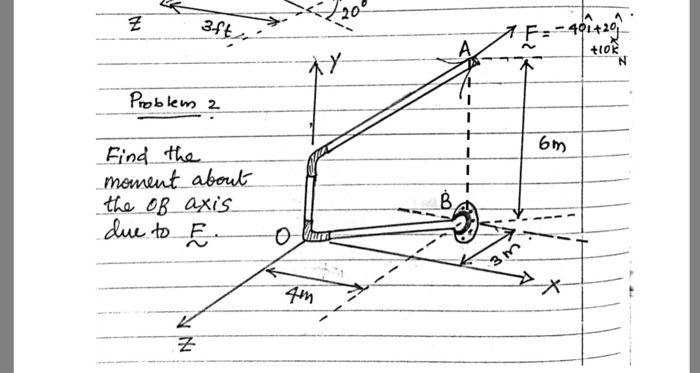 20°
Z
3ft
F = -40î+20ĵ
+10k̂
N
A
Y
Problem 2
6m
Find the
moment about
the OB axis
due to F.
B
O
3m
X
4m
Z